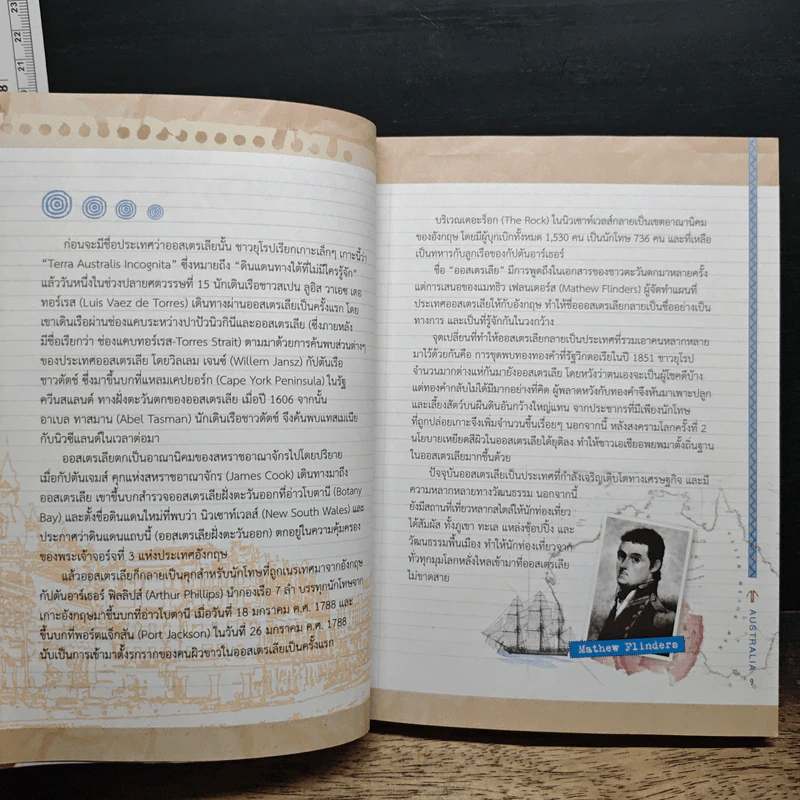 ก่อนจะมีชื่อประเทศว่าออสเตรเลียนั้น ชาวยุโรปเรียกเกาะเล็กๆ เกาะนี้ว่า
“Terra Australis Incognita” ซึ่งหมายถึง “ดินแดนทางใต้ที่ไม่มีใครรู้จัก”
แล้ววันหนึ่งในช่วงปลายศตวรรษที่ 15 นักเดินเรือชาวสเปน ลูอิส วาเอซ เดอ
ทอร์เรส (Luis Vaez de Torres) เดินทางผ่านออสเตรเลียเป็นครั้งแรก โดย
เขาเดินเรือผ่านช่องแคบระหว่างปาปัวนิวกินีและออสเตรเลีย (ซึ่งภายหลัง
มีชื่อเรียกว่า ช่องแคบทอร์เรส-Torres Strait) ตามมาด้วยการค้นพบส่วนต่างๆ
ของประเทศออสเตรเลีย โดยวิลเลม เจนซ์ (Willem Jansz) กัปตันเรือ
ชาวดัตช์ ซึ่งมาขึ้นบกที่แหลมเคปยอร์ก (Cape York Peninsula) ในรัฐ
ควีนสแลนด์ ทางฝั่งตะวันตกของออสเตรเลีย เมื่อปี 1606 จากนั้น
อาเบล ทาสมาน (Abel Tasman) นักเดินเรือชาวดัตช์ จึงค้นพบแทสเมเนีย
กับนิวซีแลนด์ในเวลาต่อมา
ออสเตรเลียตกเป็นอาณานิคมของสหราชอาณาจักรไปโดยปริยาย
เมื่อกัปตันเจมส์ คุกแห่งสหราชอาณาจักร (James Cook) เดินทางมาถึง
ออสเตรเลีย เขาขึ้นบกสำรวจออสเตรเลียฝั่งตะวันออกที่อ่าวโบตานี (Botany
Bay) และตั้งชื่อดินแดนใหม่ที่พบว่า นิวเซาท์เวลส์ (New South Wales) และ
ประกาศว่าดินแดนแถบนี้ (ออสเตรเลียฝั่งตะวันออก) ตกอยู่ในความคุ้มครอง
ของพระเจ้าจอร์จที่ 3 แห่งประเทศอังกฤษ
แล้วออสเตรเลียก็กลายเป็นคุกสำหรับนักโทษที่ถูกเนรเทศมาจากอังกฤษ
กัปตันอาร์เธอร์ ฟิลลิปส์ (Arthur Phillips) นำกองเรือ 7 ลำ บรรทุกนักโทษจาก
เกาะอังกฤษมาขึ้นบกที่อ่าวโบตานี เมื่อวันที่ 18 มกราคม ค.ศ. 1788 และ
ขึ้นบกที่พอร์ตแจ็กสัน (Port Jackson) ในวันที่ 26 มกราคม ค.ศ. 1788
นับเป็นการเข้ามาตั้งรกรากของคนผิวขาวในออสเตรเลียเป็นครั้งแรก
บริเวณเดอะร็อก (The Rock) ในนิวเซาท์เวลส์กลายเป็นเขตอาณานิคม
ของอังกฤษ โดยมีผู้บุกเบิกทั้งหมด 1,530 คน เป็นนักโทษ 736 คน และที่เหลือ
เป็นทหารกับลูกเรือของกัปตันอาร์เธอร์
ชื่อ “ออสเตรเลีย” มีการพูดถึงในเอกสารของชาวตะวันตกมาหลายครั้ง
แต่การเสนอของแมทธิว เฟลนเดอร์ส (Mathew Flinders) ผู้จัดทำแผนที่
ประเทศออสเตรเลียให้กับอังกฤษ ทำให้ชื่อออสเตรเลียกลายเป็นชื่ออย่างเป็น
ทางการ และเป็นที่รู้จักกันในวงกว้าง
จุดเปลี่ยนที่ทำให้ออสเตรเลียกลายเป็นประเทศที่รวมเอาคนหลากหลาย
มาไว้ด้วยกันคือ การขุดพบทองทองคำที่รัฐวิกตอเรียในปี 1851 ชาวยุโรป
จำนวนมากต่างแห่กันมายังออสเตรเลีย โดยหวังว่าตนเองจะเป็นผู้โชคดีบ้าง
แต่ทองคำกลับไม่ได้มีมากอย่างที่คิด ผู้พลาดหวังกับทองคำจึงหันมาเพาะปลูก
และเลี้ยงสัตว์บนผืนดินอันกว้างใหญ่แทน จากประชากรที่มีเพียงนักโทษ
ที่ถูกปล่อยเกาะจึงเพิ่มจำนวนขึ้นเรื่อยๆ นอกจากนี้ หลังสงครามโลกครั้งที่ 2
นโยบายเหยียดสีผิวในออสเตรเลียได้ยุติลง ทำให้ชาวเอเชียอพยพมาตั้งถิ่นฐาน
ในออสเตรเลียมากขึ้นด้วย
ปัจจุบันออสเตรเลียเป็นประเทศที่กำลังเจริญเติบโตทางเศรษฐกิจ และมี
ความหลากหลายทางวัฒนธรรม นอกจากนี้
ยังมีสถานที่เที่ยวหลากสไตล์ให้นักท่องเที่ยว
ได้สัมผัส ทั้งภูเขา ทะเล แหล่งช้อปปิ้ง และ
วัฒนธรรมพื้นเมือง ทำให้นักท่องเที่ยวจาก
ทั่วทุกมุมโลกหลั่งไหลเข้ามาที่ออสเตรเลีย
ไม่ขาดสาย
Mathew Flinders
AUSTRALIA
9
23
22
21